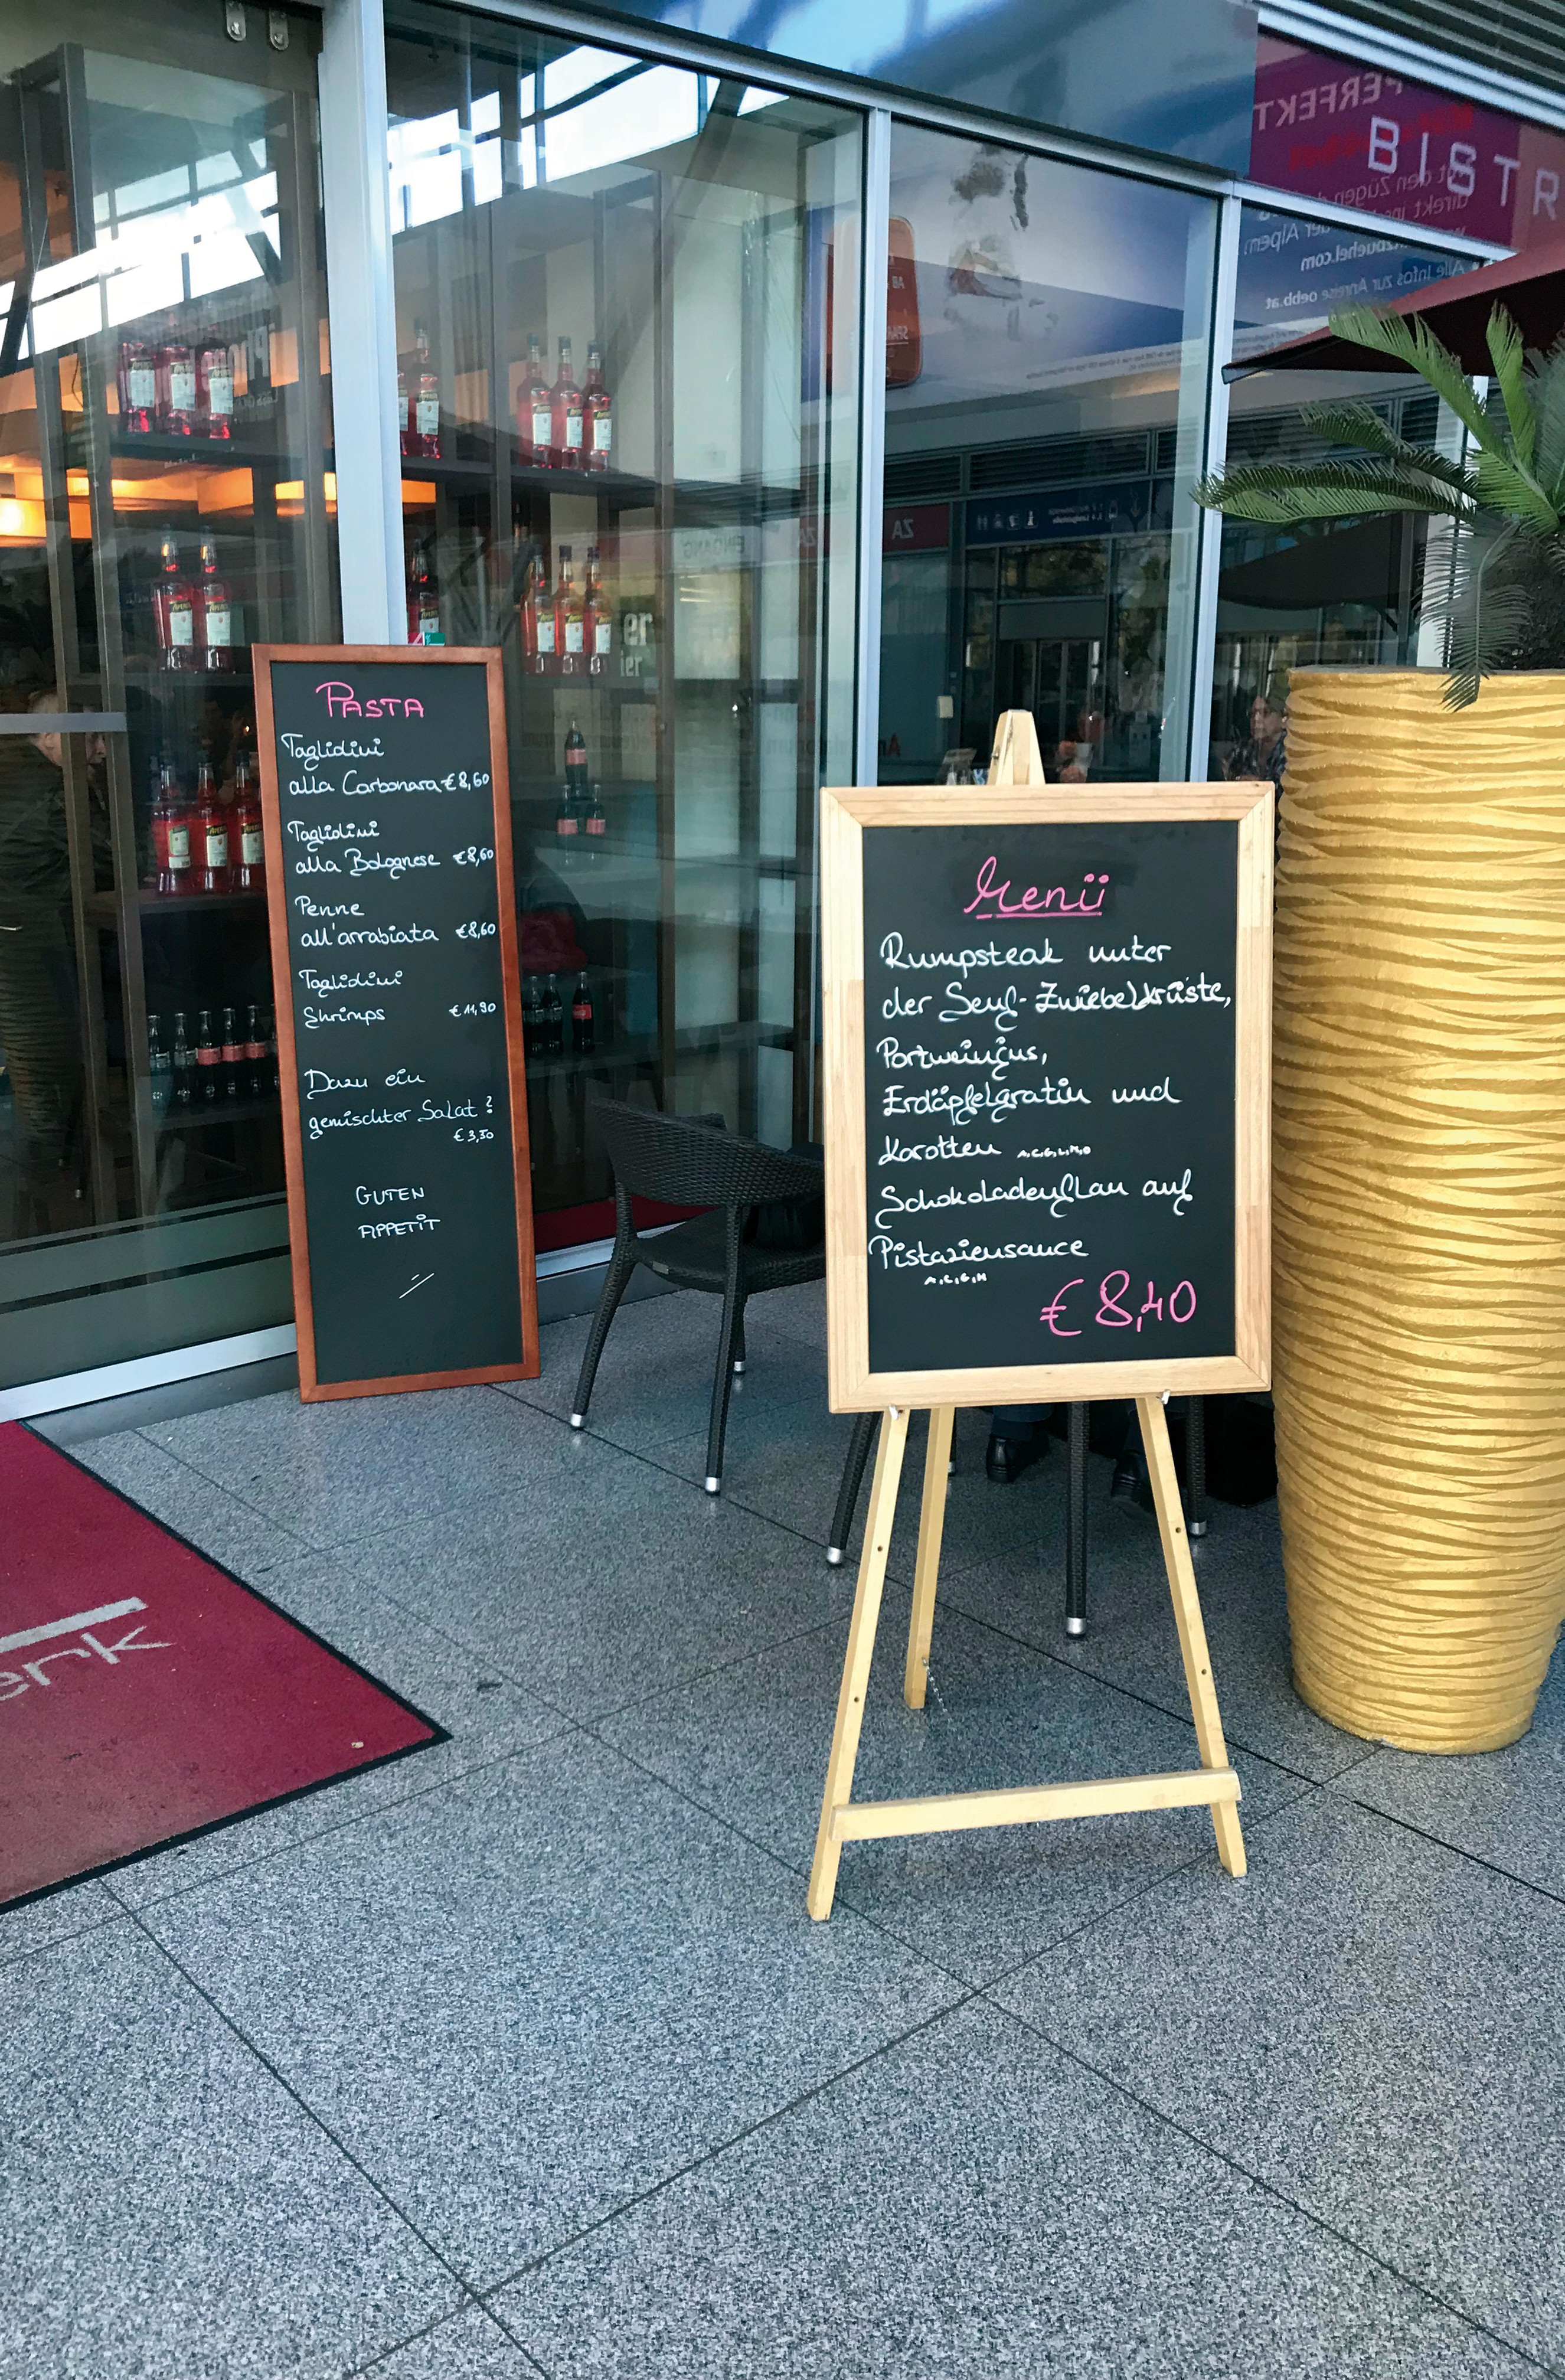 PASTA
Taglidini
alla Carbonara € 8,60
Taglidini
alla Bolognese €8,60
Penne
all'arrabiata €8,60
Taglidini
Shrimps € 11,90
Dazu ein
gemischter Salat?
€ 3,30
GUTEN
APPETIT
Menü
Rumpsteak unter
der Senf-Zwiebelkrüste,
Portweinjus,
Erdäpfelgratin und
Karotten A,C,G,L,M,O
Schokoladenflan auf
Pistaziensauce
A,C,G,H
€ 8,40
PERFEKT
BISTR
direkt
der Alpen
Alle Infos zur Anreise oebb.at
EINGANG